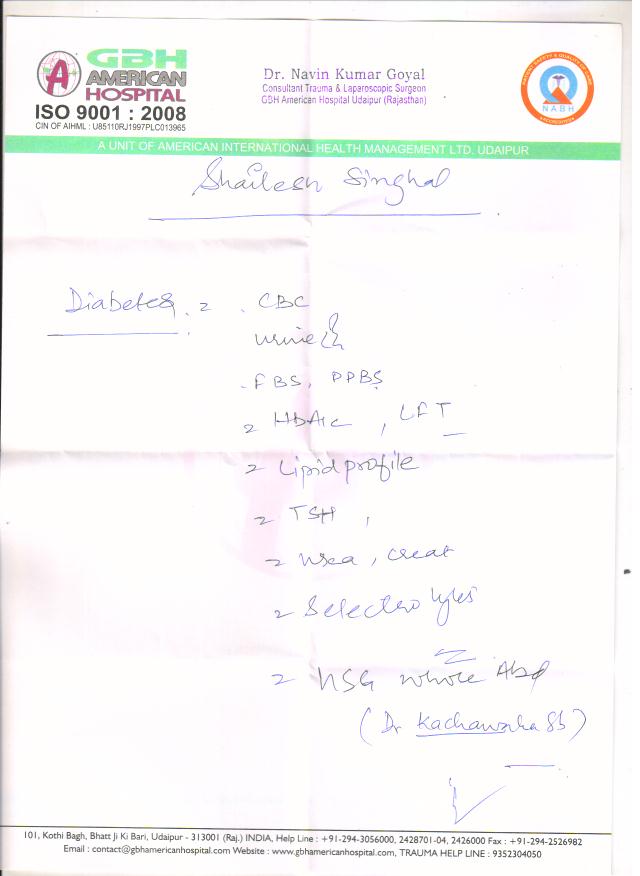 GBH
AMERICAN
HOSPITAL
ISO 9001 : 2008
CIN OF AIHML : U85110RJ1997PLC013965
Dr. Navin Kumar Goyal
Consultant Trauma & Laparoscopic Surgeon
GBH American Hospital Udaipur (Rajasthan)
NABH
A UNIT OF AMERICAN INTERNATIONAL HEALTH MANAGEMENT LTD. UDAIPUR
Shailesh Singhal
Diabetes . CBC
urine
. FBS, PPBS
HbA1c , LFT
Lipid profile
TSH ,
urea , creat
S electrolytes
USG whole Abd
(Dr Kachawaha Sb)
101, Kothi Bagh, Bhatt Ji Ki Bari, Udaipur - 313001 (Raj.) INDIA, Help Line : +91-294-3056000, 2428701-04, 2426000 Fax : +91-294-2526982
Email : contact@gbhamericanhospital.com Website : www.gbhamericanhospital.com, TRAUMA HELP LINE : 9352304050